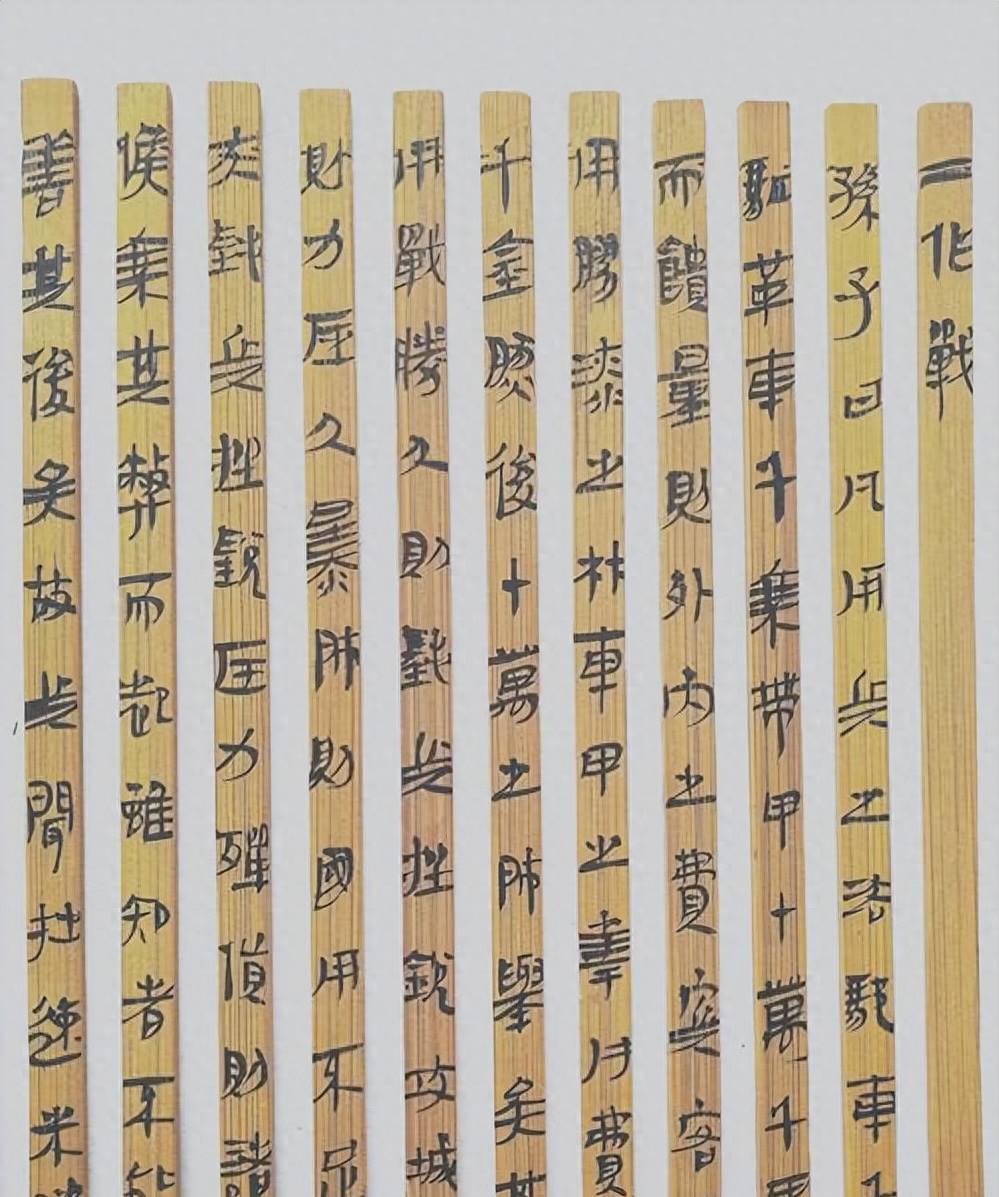 一作戰
孫子曰凡用兵之法馳車千
駟革車千乘帶甲十萬千里
而饋量則外內之費賓客
用膠漆之材車甲之奉日費
千金然後十萬之師舉矣其
用戰勝久則鈍兵挫銳攻城
則力屈久暴師則國用不足
夫鈍兵挫銳屈力殫貨則諸
侯乘其弊而起雖知者不能
善其後矣故兵聞拙速未睹